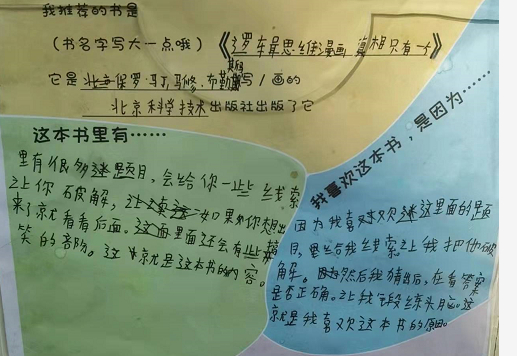 我推荐的书是
（书名字写大一点哦）《逻辑思维漫画 真相只有一个》
它是 保罗·马丁 马修· 写/画的
北京科学技术出版社出版了它
这本书里有……
里有很多迷题目，会给你一些线索
让你破解，让 如果你想出
来了就看看后面。这 里面还会有些搞
笑的 。这 就是这本书的内容。
我喜欢这本书，是因为……
因为我喜欢 这里面的题
目，然后我 线索让我把他破
解。 然后我猜出后，在看答案
是否正确。让我 段练头脑。这
就是我喜欢这本书的原因。